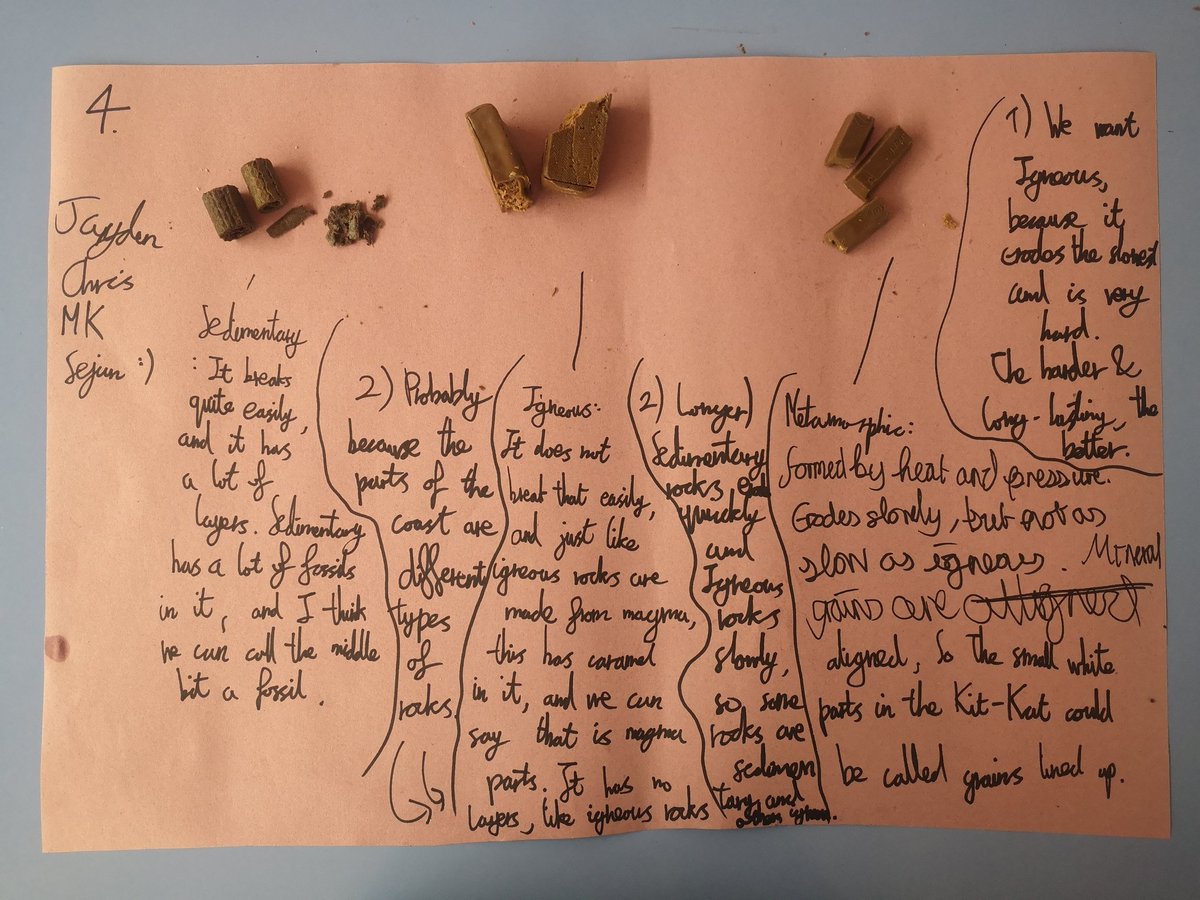 4.
Jayden
Chris
MK
Sejun :)
Sedimentary
: It breaks
quite easily,
and it has
a lot of
layers. Sedimentary
has a lot of fossils
in it, and I think
we can call the middle
bit a fossil.
2) Probably
because the
parts of the
coast are
different
types
of
rocks.
Igneous:
It does not
break that easily,
and just like
igneous rocks are
made from magma,
this has caramel
in it, and we can
say that is magma
parts. It has no
layers, like igneous rocks
2) Longer)
Sedimentary
rocks
quickly
and
Igneous
rocks
slowly,
so some
rocks are
sedimen
tary and
Metamorphic:
formed by heat and pressure.
Erodes slowly, but not as
slow as igneous. Mineral
grains are
aligned, So the small white
parts in the Kit-Kat could
be called grains lined up.
1) We want
Igneous,
because it
erodes the slowest
and is very
hard.
The harder &
long-lasting, the
better.